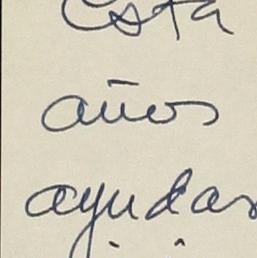 esta
años
ayudas